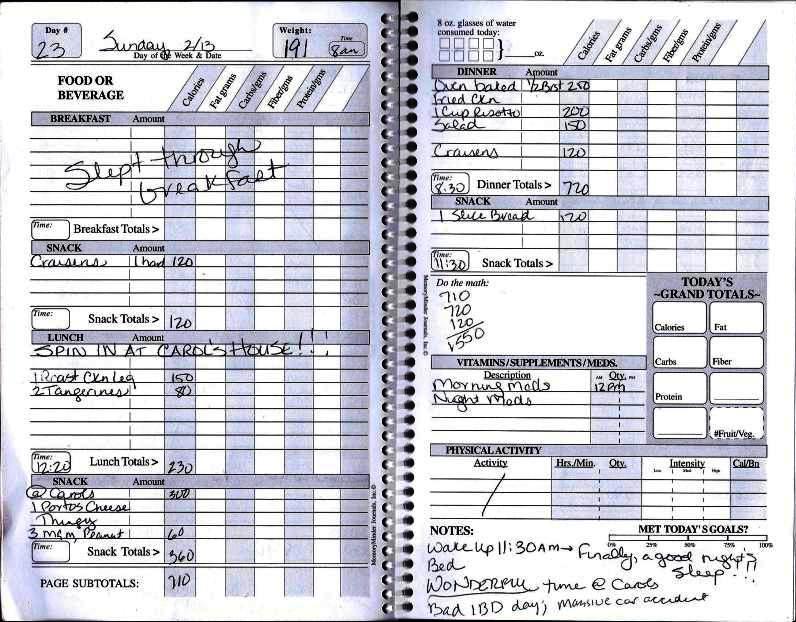 Day # 23
Sunday 2/13
Day of the Week & Date
Weight: 191
Time 8am
FOOD OR BEVERAGE
Calories Fat grams Carbs/gms Fiber/gms Protein/gms
BREAKFAST Amount
Slept through
breakfast
Time: Breakfast Totals >
SNACK Amount
Craisens 1 han 120
Time: Snack Totals > 120
LUNCH Amount
SPIN IN AT CAROL'S HOUSE!!!
1 Roast Ckn Leg 150
2 Tangerines 80
Time: 12:20 Lunch Totals > 230
SNACK Amount
@ Carols 300
1 Portos Cheese
Thingy
3 m&m, Peanut 60
Time: Snack Totals > 360
PAGE SUBTOTALS: 710
MemoryMinder Journals, Inc.©
8 oz. glasses of water
consumed today: oz.
Calories Fat grams Carbs/gms Fiber/gms Protein/gms
DINNER Amount
Oven baked 1/2 Brst 250
Fried Ckn
1 Cup Risotto 200
Salad 150
Craisens 120
Time: 8:30 Dinner Totals > 720
SNACK Amount
1 Slice Bread 120
Time: 11:30 Snack Totals >
Do the math:
710
720
120
1550
MemoryMinder Journals, Inc.©
TODAY'S
~GRAND TOTALS~
Calories Fat
Carbs Fiber
Protein
#Fruit/Veg.
VITAMINS/SUPPLEMENTS/MEDS.
Description AM Qty. PM
Morning Meds 12pm
Night Meds
PHYSICAL ACTIVITY
Activity Hrs./Min. Qty. Intensity Cal/Bn
Low Med High
NOTES:
MET TODAY'S GOALS?
0% 25% 50% 75% 100%
Wake up 11:30AM → Finally, a good night's
Bed sleep!!!
WONDERFUL time @ Carols
Bad IBD day; massive car accident